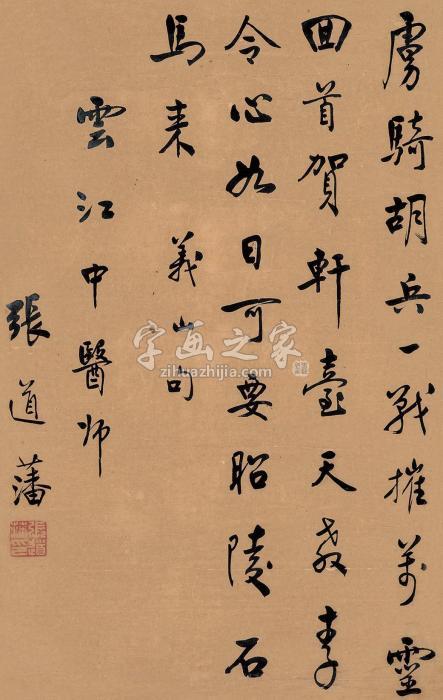 虜騎胡兵一戰摧萬靈
回首賀軒臺天教李
令心如日可要昭陵石
馬来 義山句
雲江中醫師
張道藩
字画之家
zihuazhijia.com